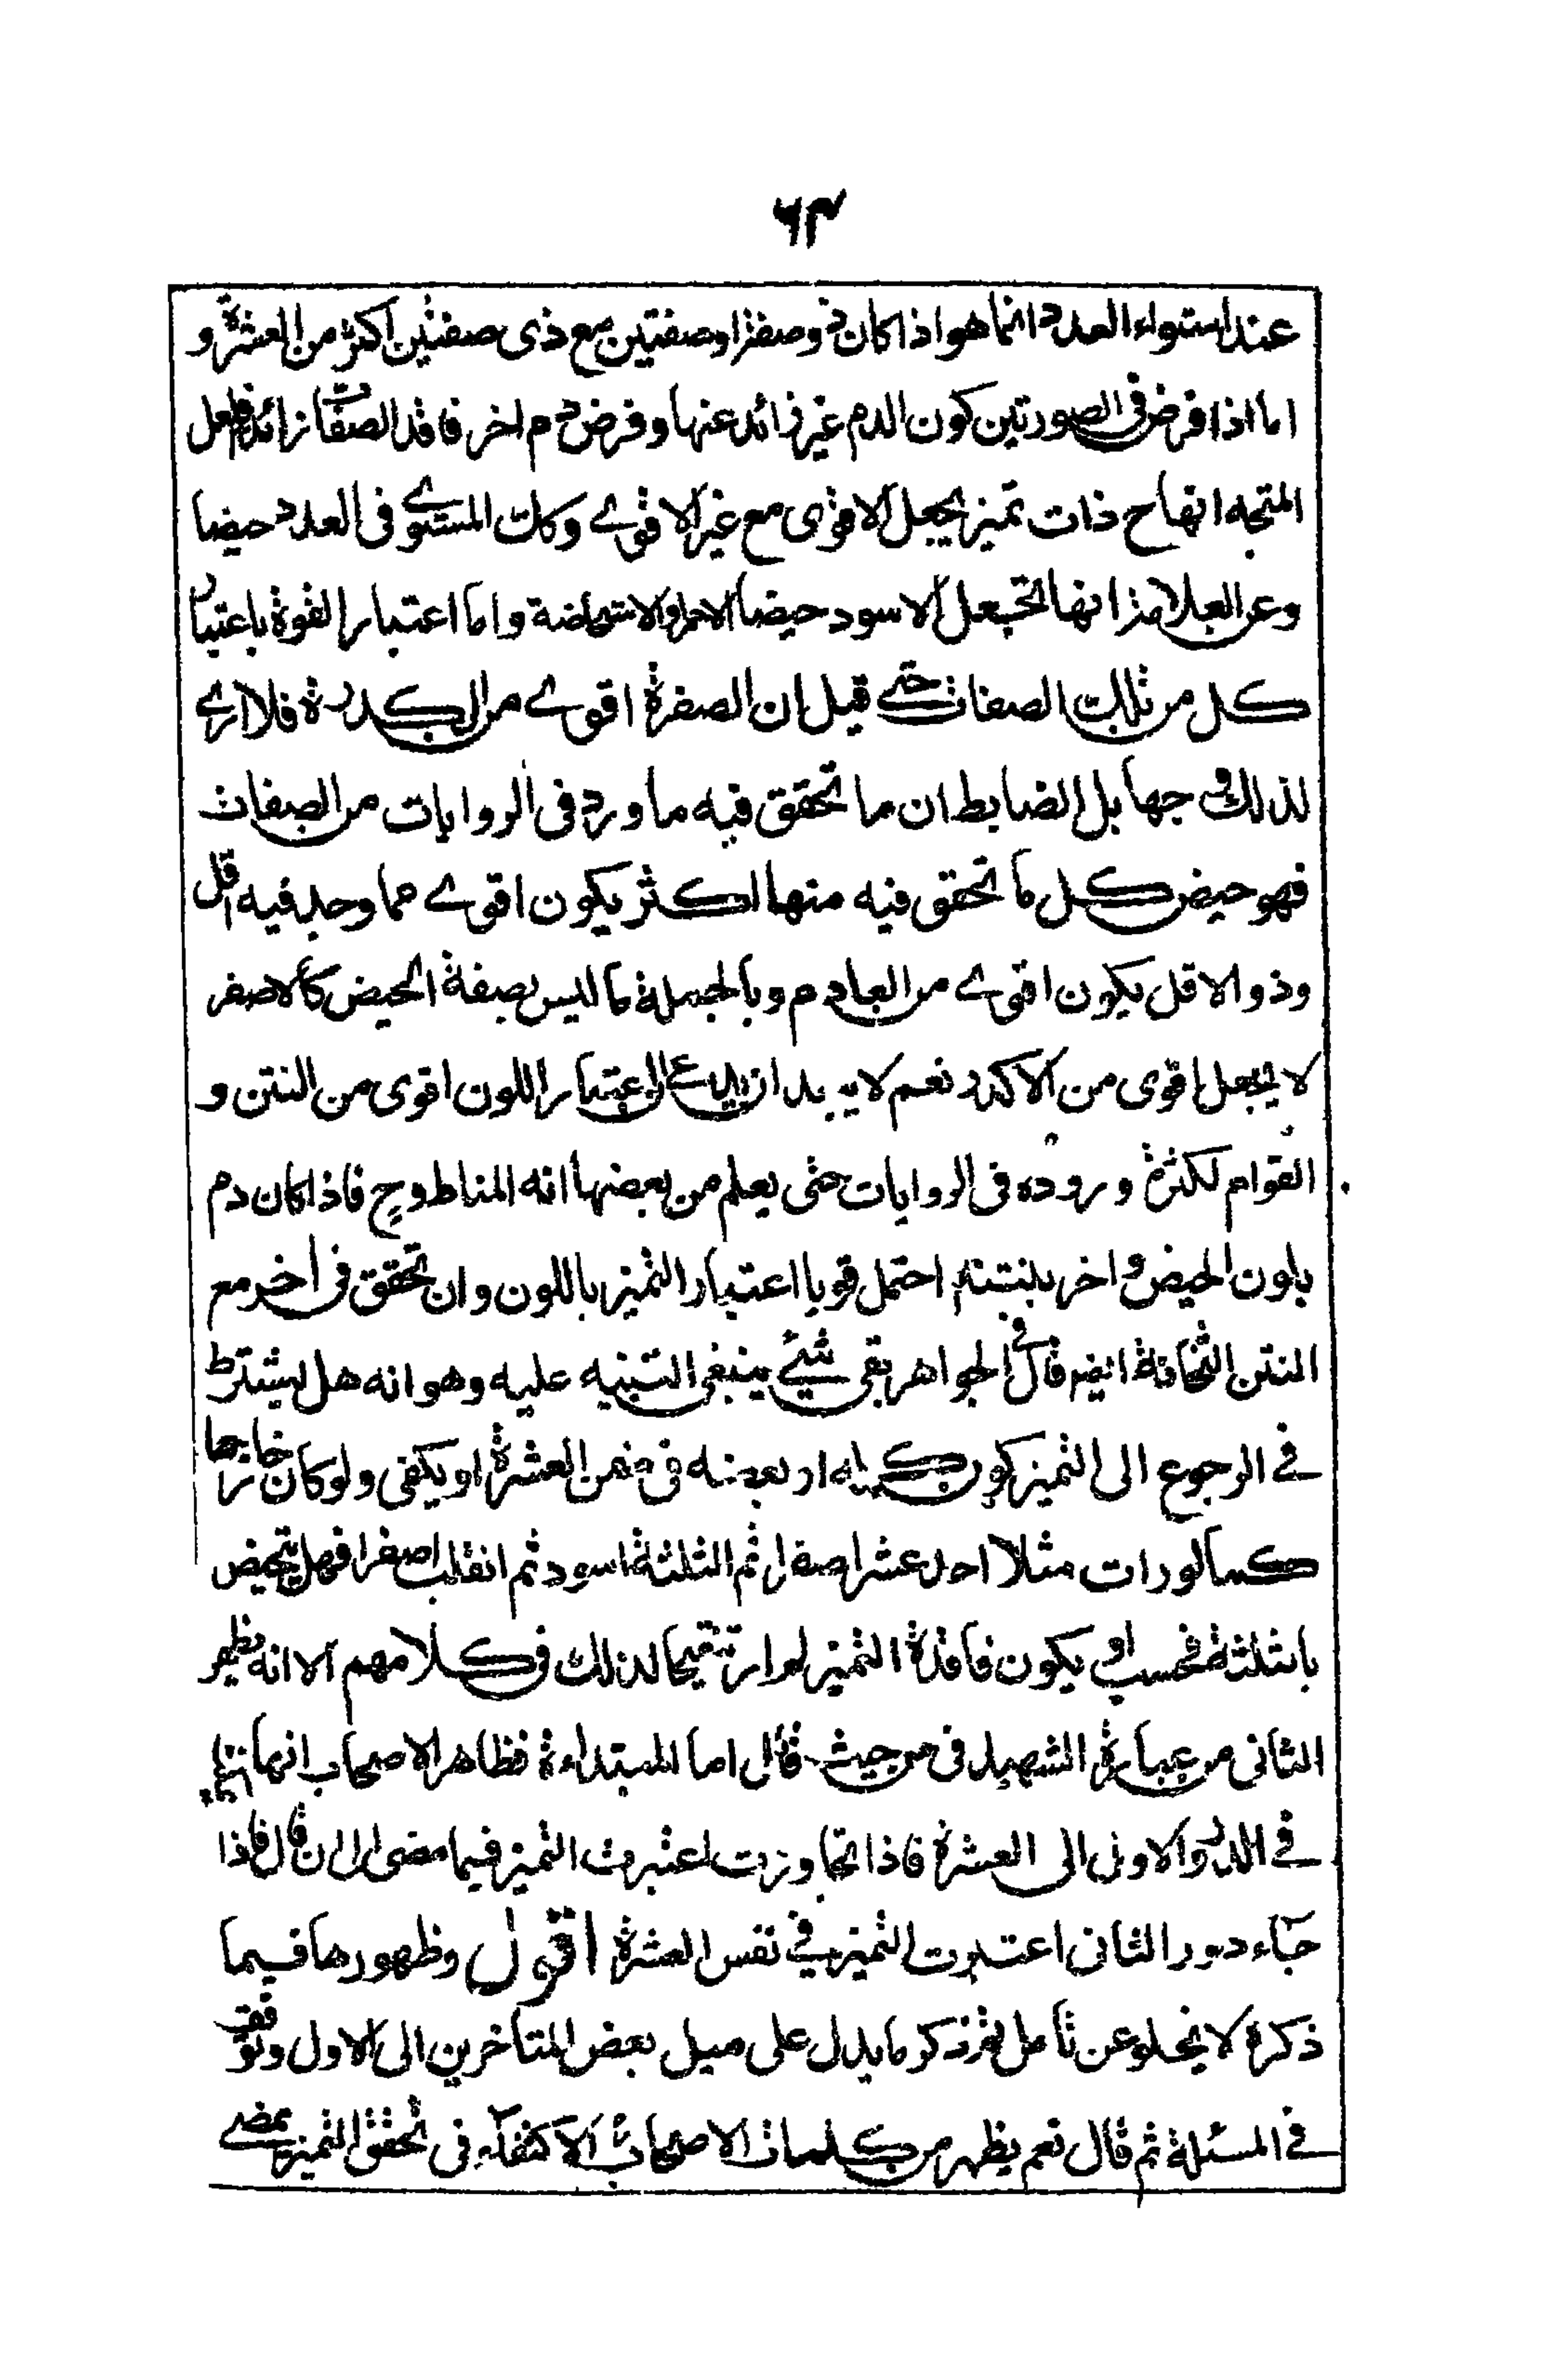 ۶۳
عند استواء العدد انما هو اذا كان ذو صفة او صفتين مع ذى صفتين اكثر من العشرة و
اما اذا فرض فى الصورتين كون الدم غير زائد عنها و فرض دم اخر فاقد الصفات زائد فلعل
المتجه انها ح ذات تميز يجعل الاقوى مع غير الاقوے وكك المستوے فى العدد حيضا
وعن العلامة انها تجعل الاسود حيضا والاحمر استحاضة واما اعتبار القوة باعتبار
كل من تلك الصفات حتے قيل ان الصفرة اقوے من الكدرة فلا ارے
لذلك وجها بل الضابط ان ما تحقق فيه ما ورد فى الروايات من الصفات
فهو حيض كل ما تحقق فيه منها اكثر يكون اقوے مما وجد فيه اقل
وذو الاقل يكون اقوے من العادم وبالجملة ما ليس بصفة الحيض كالاصفر
لا يجعل اقوى من الاكدر نعم لا يبعد ان يدعى اعتبار اللون اقوى من النتن و
القوام لكثرة وروده فى الروايات حتى يعلم من بعضها انه المناط وح فاذا كان دم
بلون الحيض و اخر بنتنه احتمل قويا اعتبار التميز باللون وان تحقق فى اخر مع
النتن الثخانة ايضا قال فى الجواهر بقى شيئ ينبغى التنبيه عليه وهو انه هل يشترط
فے الرجوع الى التميز كون كله او بعضه فى ضمن العشرة او يكفى ولو كان خارجا
كما لو رات مثلا احد عشر اصفر ثم الثلثة اسود ثم انقلب اصفرا فهل تتحيض
بالثلثة فحسب او يكون فاقدة التميز لم ار تنقيحا لذلك فى كلامهم الا انه يظهر
الثانى من عبارة الشهيد فى من حيث قال اما المبتداءة فظاهر الاصحاب انها
فے الدور الاول الى العشرة فاذا تجاوزت اعتبرت التميز فيما مضى الى ان قال فاذا
جاء دور الثانى اعتبرت التميز فے نفس العشرة اقول وظهورها فيما
ذكره لا يخلو عن تأمل ثم ذكر ما يدل على ميل بعض المتاخرين الى الاول وتوقف
فے المسئلة ثم قال نعم يظهر من كلمات الاصحاب الاكتفاء فى تحقق التميز بمضے